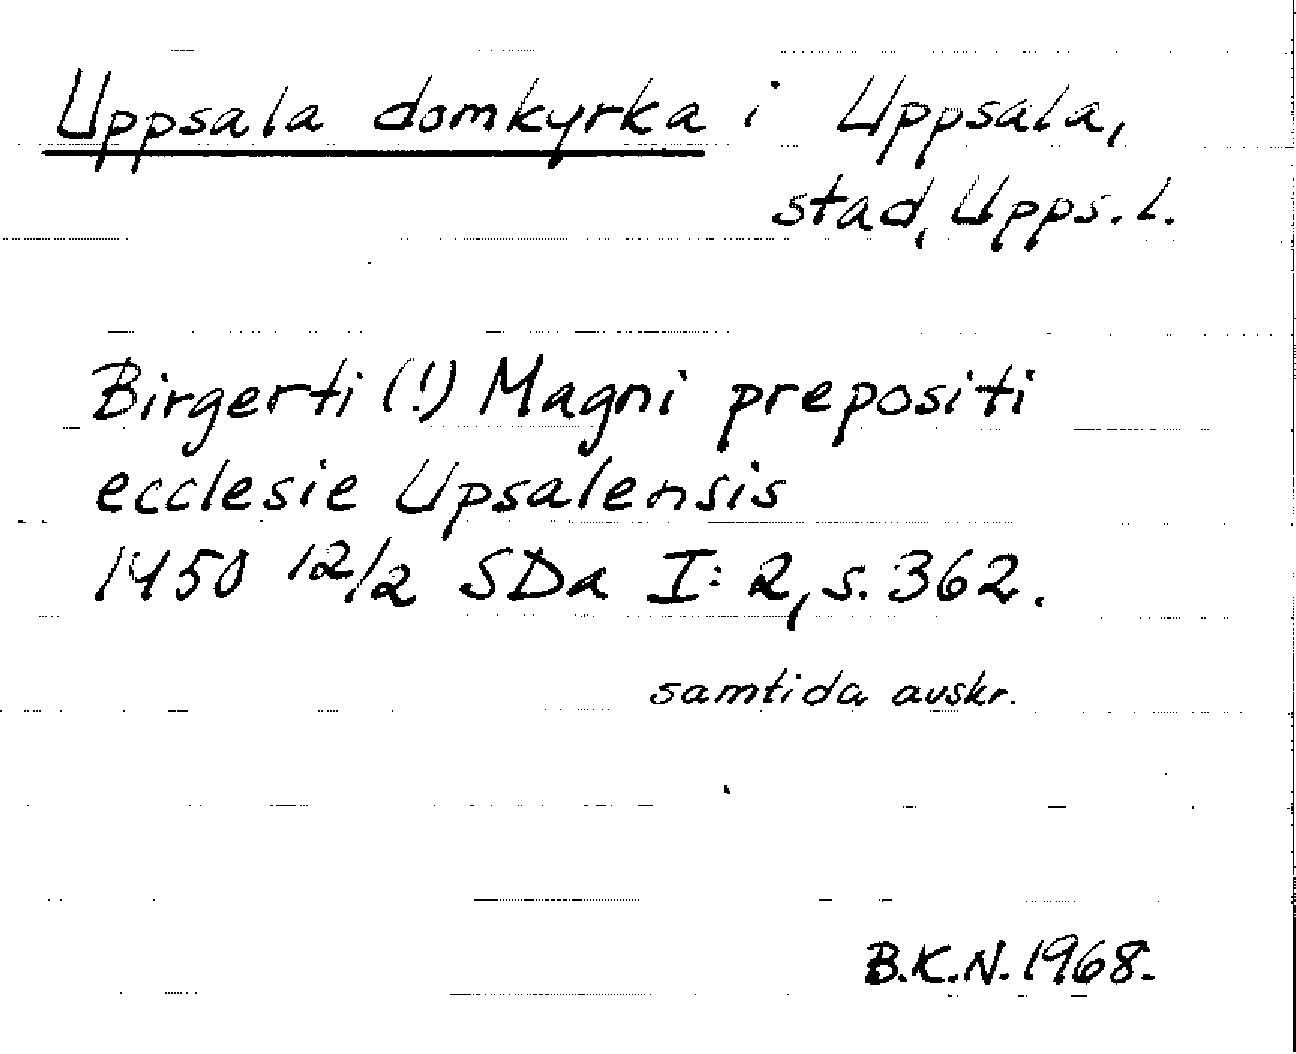 Uppsala domkyrka i Uppsala,
stad, Upps. l.
Birgerti (!) Magni prepositi
ecclesie Upsalensis
1450 12/2 SDa I: 2, s. 362.
samtida avskr.
B.K.N. 1968.